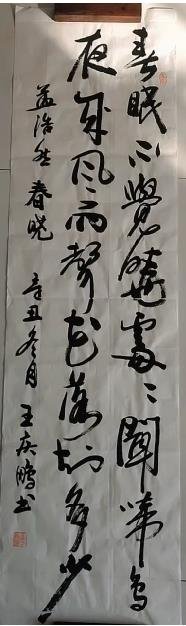 春眠不覺曉處々聞啼鸟
夜来风雨聲花落知多少
孟浩然 春晓 辛丑冬月 王庆鹏书